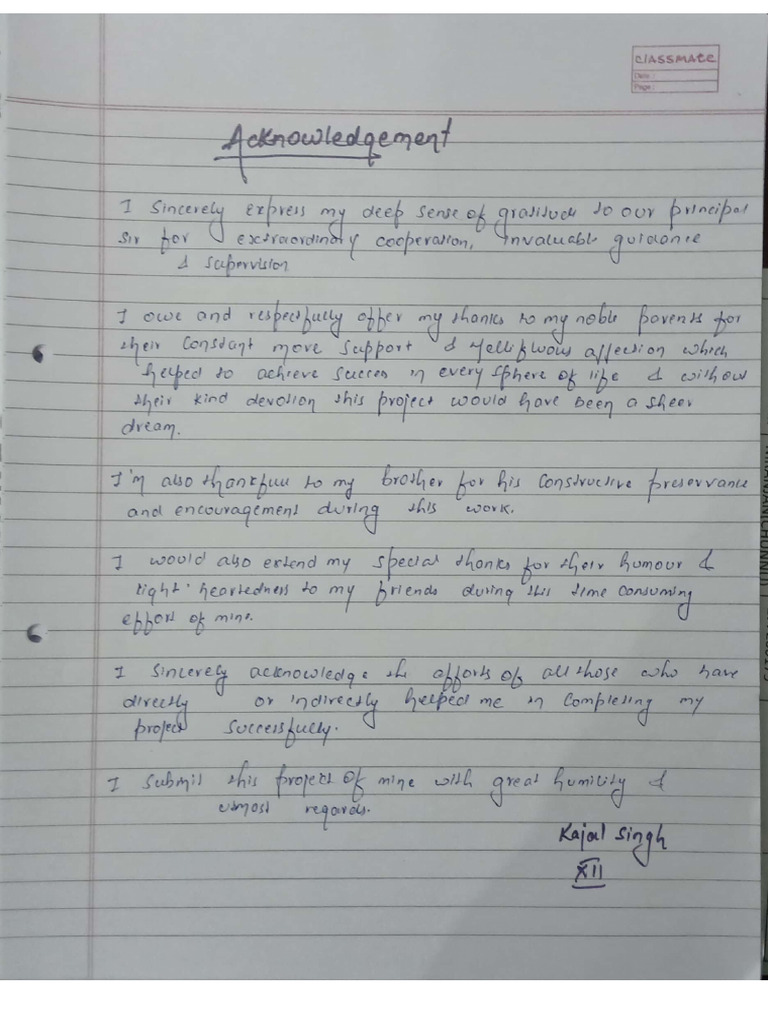 classmate
Date :
Page :
Acknowledgement
I sincerely express my deep sense of gratitude to our principal
sir for extraordinary cooperation, invaluable guidance
& supervision
I owe and respectfully offer my thanks to my noble parents for
their constant move support & Mellifluous affection which
helped to achieve succes in every sphere of life & without
their kind devotion this project would have been a sheer
dream.
I'm also thankfull to my brother for his constructive preservance
and encouragement during this work.
I would also extend my special thanks for their humour &
light-heartedness to my friends during this time consuming
effort of mine.
I sincerely acknowledge the efforts of all those who have
directly or indirectly helped me in completing my
project successfully.
I submit this project of mine with great humility &
utmost regards.
Kajal Singh
XII